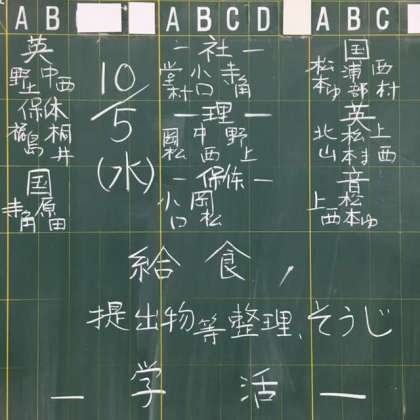 A B
A B C D
A B C
英
野上 中西
保体
島 桐井
国
寺角 原田
10/5
(水)
一社一
小口 寺角
一理一
岡松 中西 野上
一保体一
小口 岡松
国
松本ゆ 浦部 西村
英
北山 松本ま 上西
音
上西 松本ゆ
給食,
提出物等整理、そうじ
一学活一